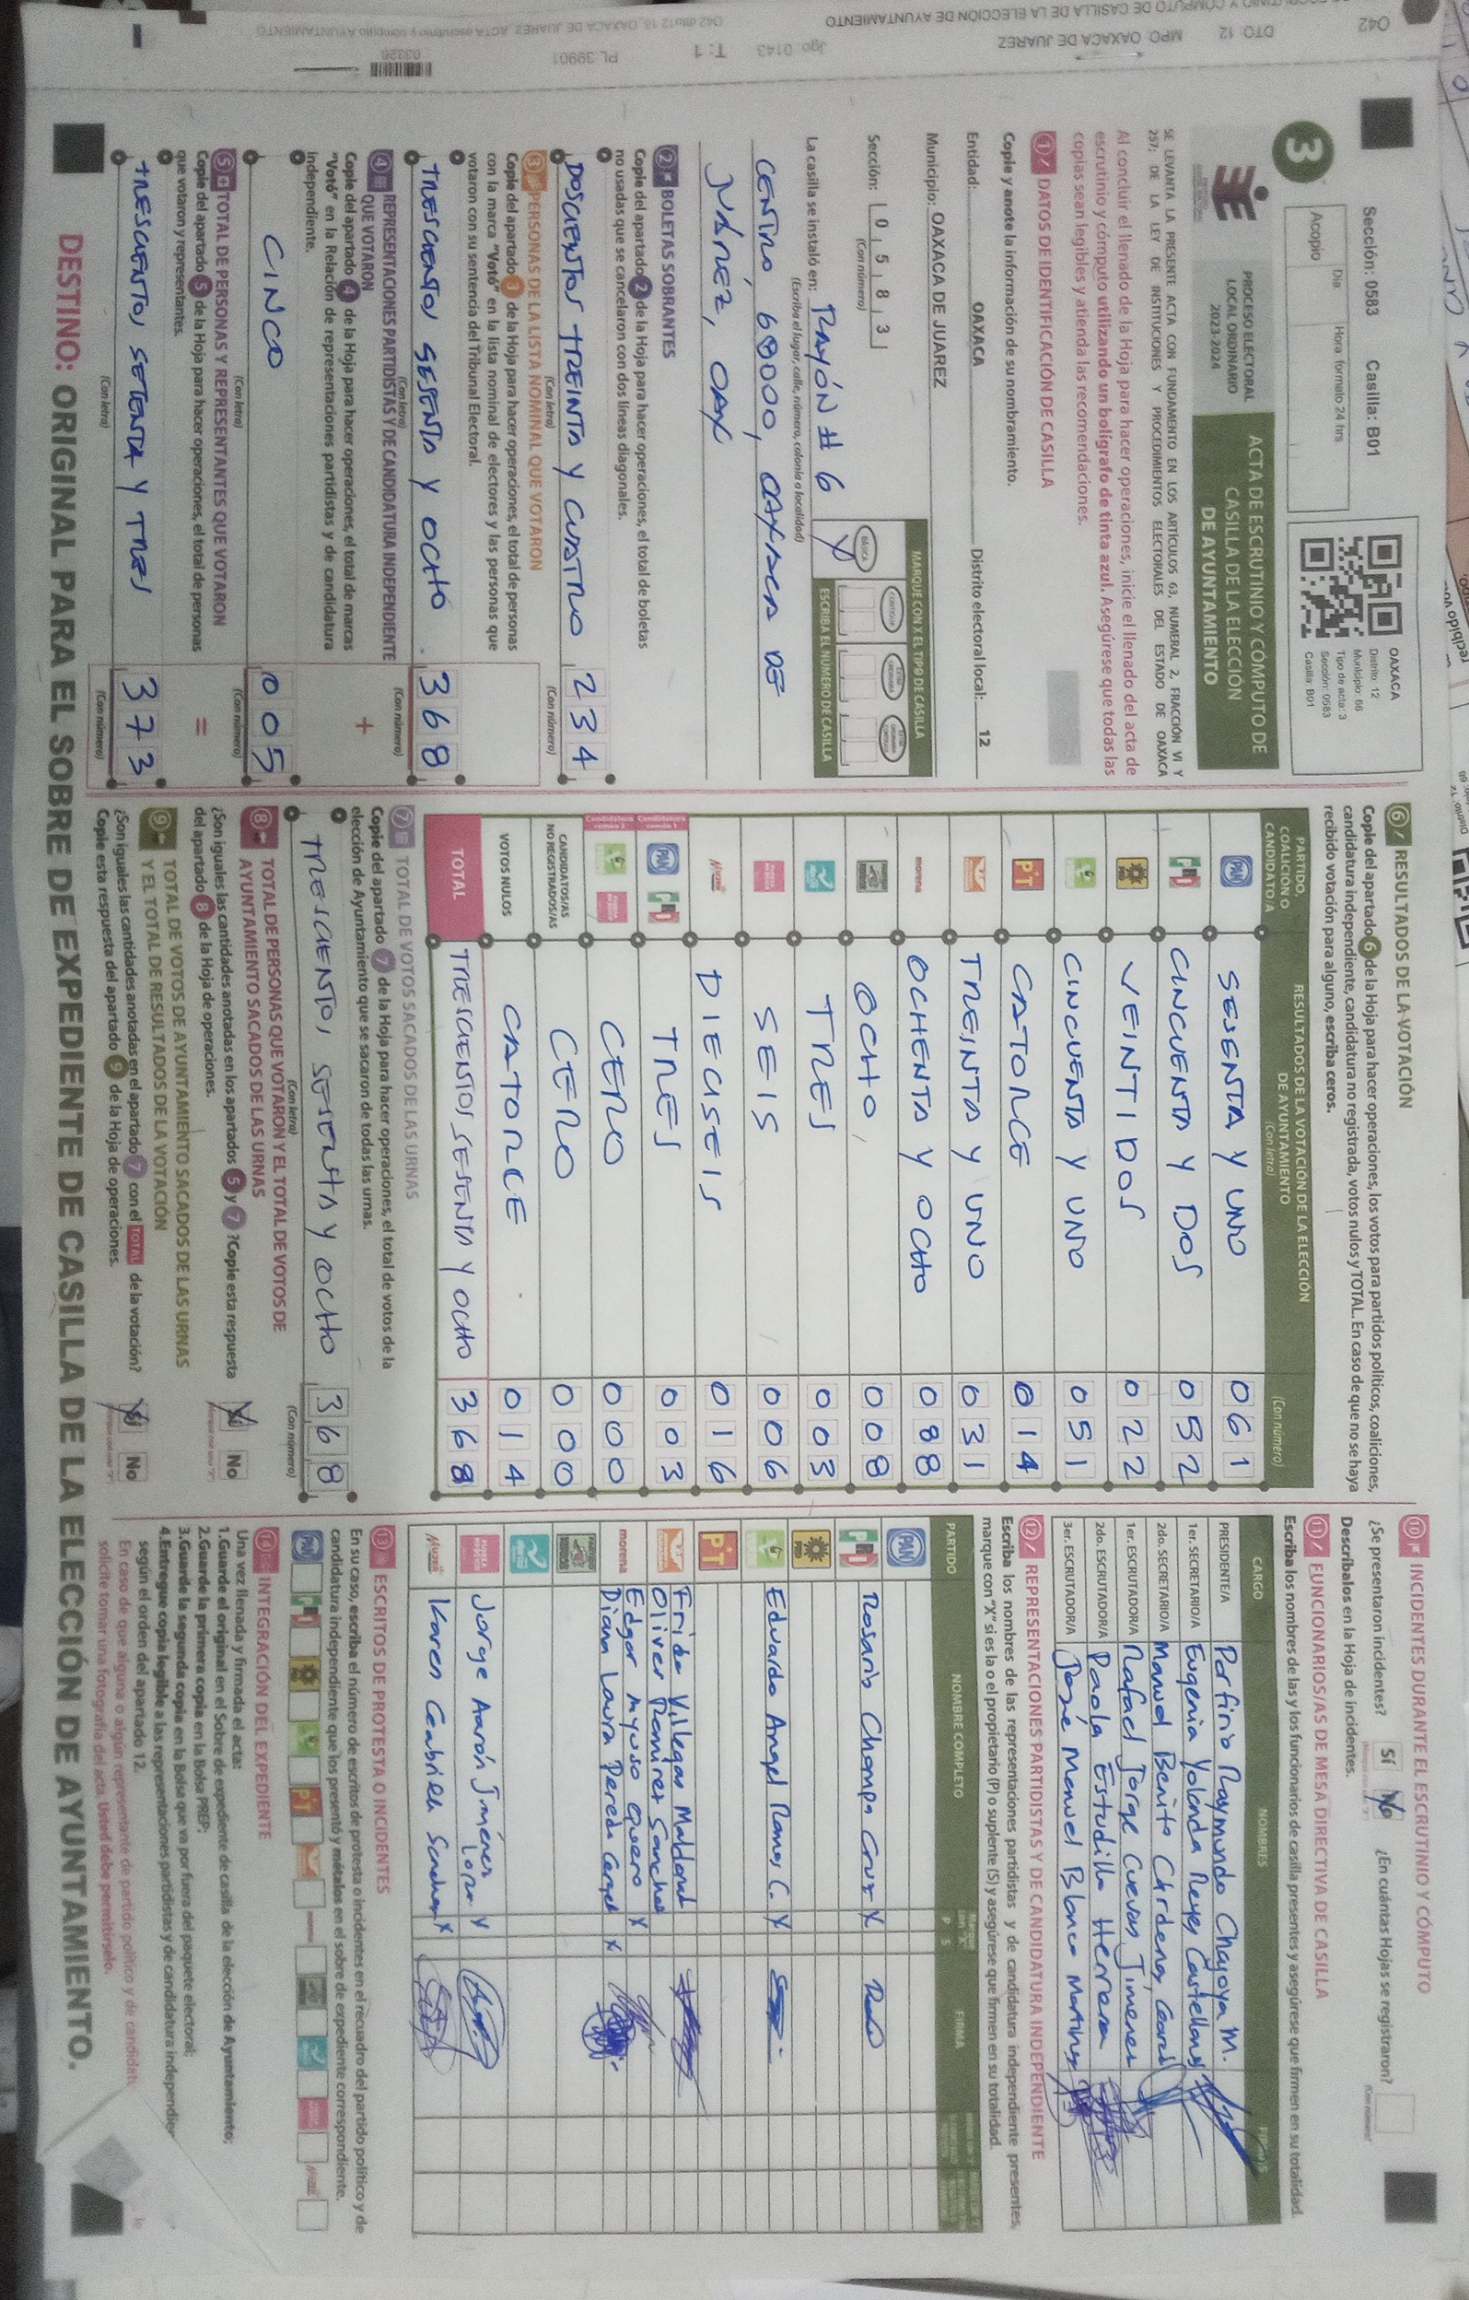 Sección: 0583 Casilla: B01
Acopio
Día
Hora (formato 24 hrs
OAXACA
Distrito: 12
Municipio: 66
Tipo de acta: 3
Sección: 0583
Casilla: B01
3
PROCESO ELECTORAL
LOCAL ORDINARIO
2023-2024
ACTA DE ESCRUTINIO Y CÓMPUTO DE
CASILLA DE LA ELECCIÓN
DE AYUNTAMIENTO
SE LEVANTA LA PRESENTE ACTA CON FUNDAMENTO EN LOS ARTÍCULOS 63, NUMERAL 2, FRACCIÓN VI Y
257; DE LA LEY DE INSTITUCIONES Y PROCEDIMIENTOS ELECTORALES DEL ESTADO DE OAXACA
Al concluir el llenado de la Hoja para hacer operaciones, inicie el llenado del acta de
escrutinio y cómputo utilizando un bolígrafo de tinta azul. Asegúrese que todas las
copias sean legibles y atienda las recomendaciones.
1 DATOS DE IDENTIFICACIÓN DE CASILLA
Copie y anote la información de su nombramiento.
Entidad: OAXACA Distrito electoral local: 12
Municipio: OAXACA DE JUAREZ
Sección: 0 5 8 3
(Con número)
MARQUE CON X EL TIPO DE CASILLA
BÁSICA
X
ESCRIBA EL NÚMERO DE CASILLA
La casilla se instaló en: RAYÓN # 6
(Escriba el lugar, calle, número, colonia o localidad)
CENTRO 68000, OAXACA DE
JUÁREZ, OAX
2 BOLETAS SOBRANTES
Copie del apartado 2 de la Hoja para hacer operaciones, el total de boletas
no usadas que se cancelaron con dos líneas diagonales.
DOSCIENTOS TREINTA Y CUATRO 234
(Con letra) (Con número)
3 PERSONAS DE LA LISTA NOMINAL QUE VOTARON
Copie del apartado 3 de la Hoja para hacer operaciones, el total de personas
con la marca "Votó" en la lista nominal de electores y las personas que
votaron con su sentencia del Tribunal Electoral.
TRESCIENTOS SESENTA Y OCHO. 368
(Con letra) (Con número)
4 REPRESENTACIONES PARTIDISTAS Y DE CANDIDATURA INDEPENDIENTE
QUE VOTARON
Copie del apartado 4 de la Hoja para hacer operaciones, el total de marcas
"Votó" en la Relación de representaciones partidistas y de candidatura
independiente.
+
CINCO 005
(Con letra) (Con número)
5 TOTAL DE PERSONAS Y REPRESENTANTES QUE VOTARON
Copie del apartado 5 de la Hoja para hacer operaciones, el total de personas
que votaron y representantes.
=
TRESCIENTOS SETENTA Y TRES 373
(Con letra) (Con número)
6 RESULTADOS DE LA VOTACIÓN
Copie del apartado 6 de la Hoja para hacer operaciones, los votos para partidos políticos, coaliciones,
candidatura independiente, candidatura no registrada, votos nulos y TOTAL. En caso de que no se haya
recibido votación para alguno, escriba ceros.
PARTIDO,
COALICION O
CANDIDATO/A
RESULTADOS DE LA VOTACIÓN DE LA ELECCIÓN
DE AYUNTAMIENTO
(Con letra) (Con número)
PAN SESENTA Y UNO 061
PRI CINCUENTA Y DOS 052
PRD VEINTIDOS 022
CINCUENTA Y UNO 051
PT CATORCE 014
TREINTA Y UNO 031
morena OCHENTA Y OCHO 088
OCHO 008
TRES 003
SEIS 006
MUJER DIECISEIS 016
PAN PRI TRES 003
CERO 000
CANDIDATOS/AS
NO REGISTRADOS/AS CERO 000
VOTOS NULOS CATORCE 014
TOTAL TRESCIENTOS SESENTA Y OCHO 368
7 TOTAL DE VOTOS SACADOS DE LAS URNAS
Copie del apartado 7 de la Hoja para hacer operaciones, el total de votos de la
elección de Ayuntamiento que se sacaron de todas las urnas.
TRESCIENTOS SESENTA Y OCHO 368
(Con letra) (Con número)
8 TOTAL DE PERSONAS QUE VOTARON Y EL TOTAL DE VOTOS DE
AYUNTAMIENTO SACADOS DE LAS URNAS
¿Son iguales las cantidades anotadas en los apartados 5 y 7 ? Copie esta respuesta
del apartado 8 de la Hoja de operaciones.
Sí No
9 TOTAL DE VOTOS DE AYUNTAMIENTO SACADOS DE LAS URNAS
Y EL TOTAL DE RESULTADOS DE LA VOTACIÓN
¿Son iguales las cantidades anotadas en el apartado 7 con el TOTAL de la votación?
Copie esta respuesta del apartado 9 de la Hoja de operaciones.
Sí No
10 INCIDENTES DURANTE EL ESCRUTINIO Y CÓMPUTO
¿Se presentaron incidentes? Sí No ¿En cuántas Hojas se registraron?
Descríbalos en la Hoja de incidentes.
11 FUNCIONARIOS/AS DE MESA DIRECTIVA DE CASILLA
Escriba los nombres de las y los funcionarios de casilla presentes y asegúrese que firmen en su totalidad.
CARGO NOMBRES FIRMAS
PRESIDENTE/A Porfirio Raymundo Chayoya M.
1er. SECRETARIO/A Eugenia Yolanda Reyes Castellanos
2do. SECRETARIO/A Manuel Benito Cárdenas García
1er. ESCRUTADOR/A Rafael Jorge Cuevas Jimenez
2do. ESCRUTADOR/A Paola Estudillo Herrera
3er. ESCRUTADOR/A José Manuel Blanco Martinez
12 REPRESENTACIONES PARTIDISTAS Y DE CANDIDATURA INDEPENDIENTE
Escriba los nombres de las representaciones partidistas y de candidatura independiente presentes,
marque con "X" si es la o el propietario (P) o suplente (S) y asegúrese que firmen en su totalidad.
PARTIDO NOMBRE COMPLETO P S FIRMA
PAN
PRI Rosario Chompa Cruz X
PRD
Eduardo Angel Ramos C. X
PT
Frida Villegas Maldonado
Oliver Ramirez Sanchez
morena Edgar Moyuso Quero X
Diana Laura Pereda Cangel X
Jorge Aarón Jiménez Lopez X
MUJER Karen Gabriela Sanchez X
13 ESCRITOS DE PROTESTA O INCIDENTES
En su caso, escriba el número de escritos de protesta o incidentes en el recuadro del partido político y de
candidatura independiente que los presentó y métalos en el sobre de expediente correspondiente.
14 INTEGRACIÓN DEL EXPEDIENTE
Una vez llenada y firmada el acta:
1.Guarde el original en el Sobre de expediente de casilla de la elección de Ayuntamiento;
2.Guarde la primera copia en la Bolsa PREP;
3.Guarde la segunda copia en la Bolsa que va por fuera del paquete electoral;
4.Entregue copia legible a las representaciones partidistas y de candidatura independien
según el orden del apartado 12.
En caso de que alguna o algún representante de partido político y de candidatu
solicite tomar una fotografía del acta, Usted debe permitírselo.
DESTINO: ORIGINAL PARA EL SOBRE DE EXPEDIENTE DE CASILLA DE LA ELECCIÓN DE AYUNTAMIENTO.
03326
042 DTO 12 MPO OAXACA DE JUAREZ Jgo 0143 T: 1 PL 39901
Y CÓMPUTO DE CASILLA DE LA ELECCIÓN DE AYUNTAMIENTO